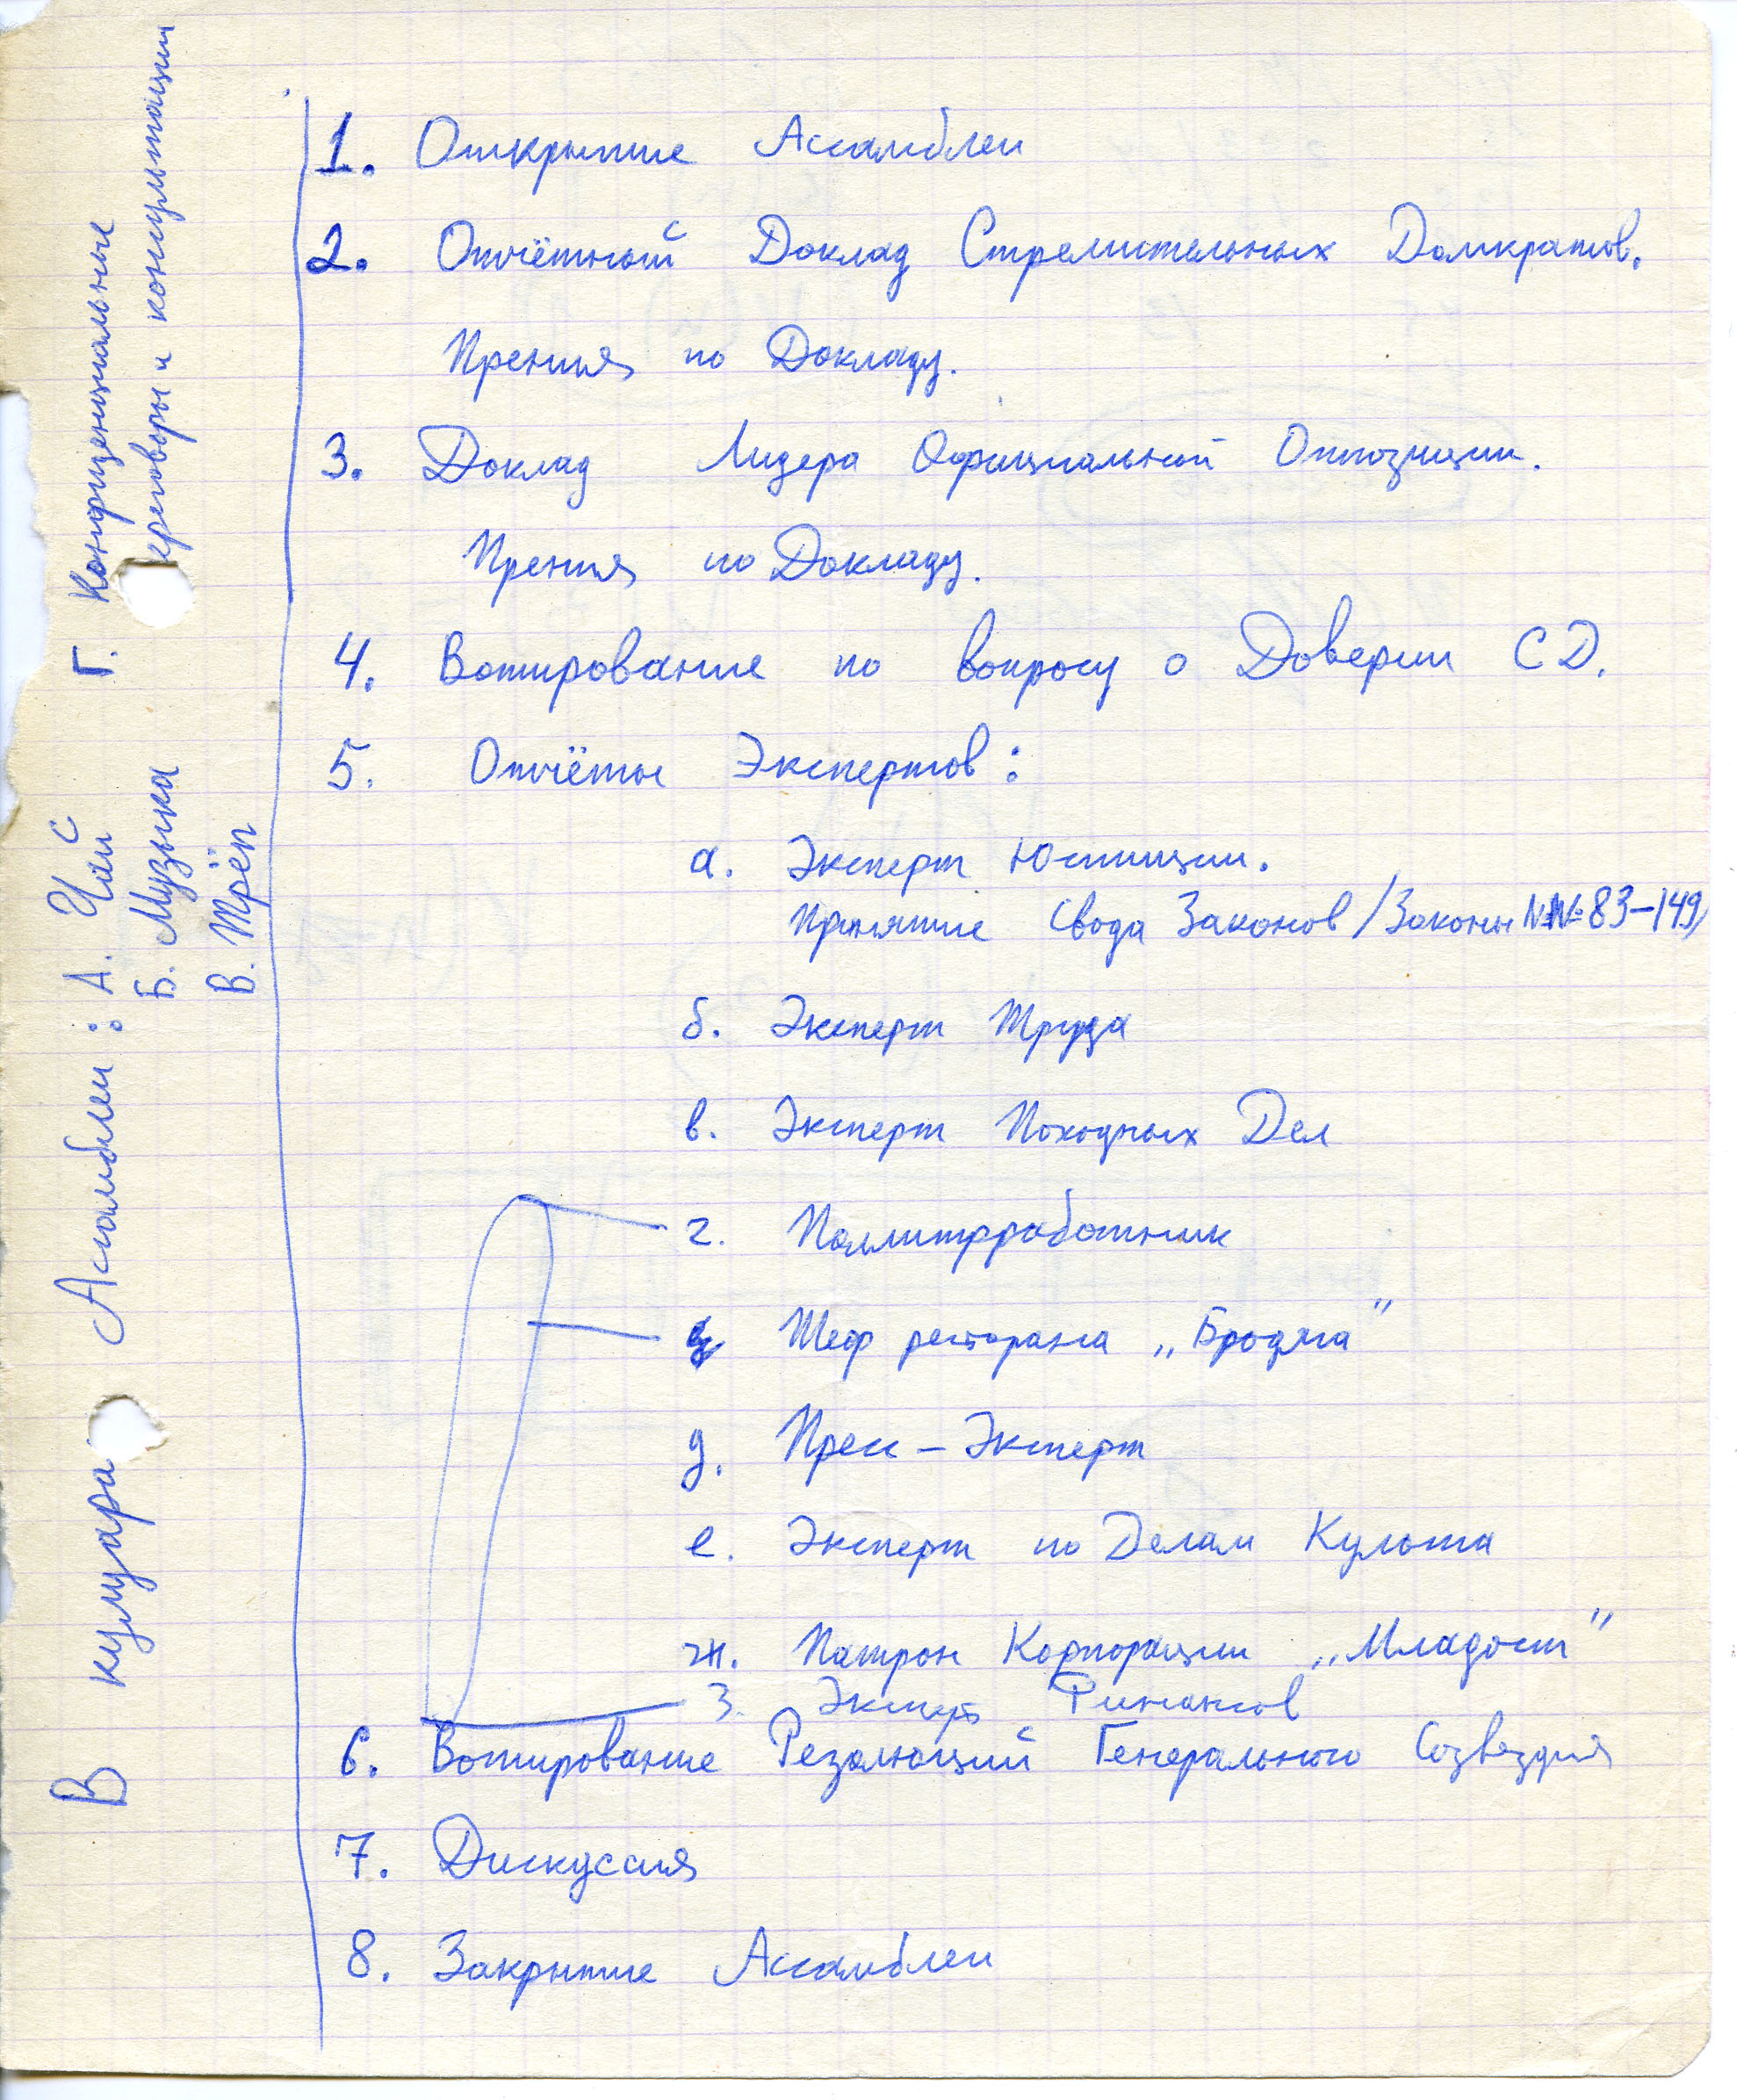 1. Открытие Ассамблеи
2. Отчётный Доклад Стремительных Домкратов.
Прения по Докладу.
3. Доклад Лидера Официальной Оппозиции.
Прения по Докладу.
4. Вотирование по вопросу о Доверии СД.
5. Отчёты Экспертов:
а. Эксперт Юстиции.
Принятие Свода Законов /Законы №№ 83-149/
б. Эксперт Труда
в. Эксперт Походных Дел
г. Поллитрработник
Шеф ресторана „Бродяга"
д. Пресс-Эксперт
е. Эксперт по Делам Культа
ж. Патрон Корпорации „Младост"
з. Эксперт Финансов
6. Вотирование Резолюций Генерального Созвездия
7. Дискуссия
8. Закрытие Ассамблеи
В кулуара Ассамблеи: А. Чай
Б. Музыка
В. Трёп
Г. Конфиденциальные
ереговоры и консультации